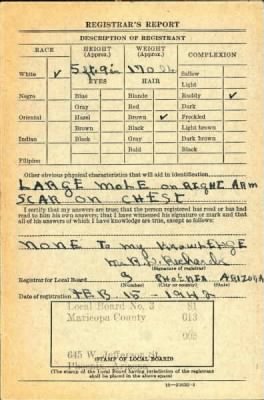 REGISTRAR'S REPORT
DESCRIPTION OF REGISTRANT
RACE HEIGHT (Approx.) WEIGHT (Approx.) COMPLEXION
White ✓ 5 ft. 9 in 170 Sallow
EYES HAIR Light
Negro Blue Blonde Ruddy ✓
Gray Red Dark
Oriental Hazel Brown ✓ Freckled
Brown Black Light brown
Indian Black Gray Dark brown
Bald Black
Filipino
Other obvious physical characteristics that will aid in identification
LARGE mole on Right Arm
SCAR on CHEST
I certify that my answers are true; that the person registered has read or has had read to him his own answers; that I have witnessed his signature or mark and that all of his answers of which I have knowledge are true, except as follows:
NONE To my Knowledge
Richards
(Signature of registrar)
Registrar for Local Board 3 PHOENIX ARIZONA
(Number) (City or county) (State)
Date of registration FEB. 15 - 1942
Local Board No. 3
Maricopa County 013
003
645 W. Jefferson St.
Phoenix, Arizona
(STAMP OF LOCAL BOARD)
(The stamp of the Local Board having jurisdiction of the registrant shall be placed in the above space)